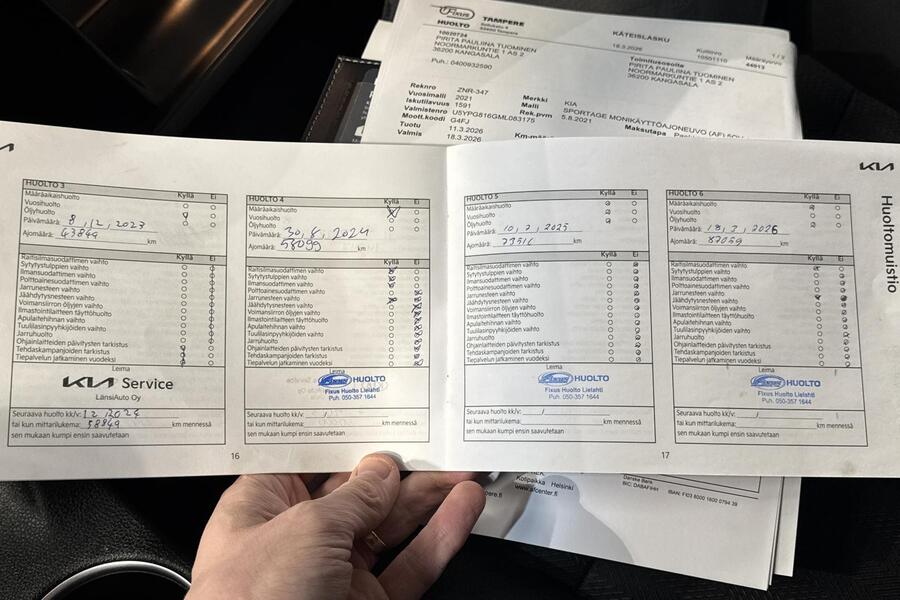 Fixus
HUOLTO
TAMPERE
33900 Tampere
KÄTEISLASKU
18.3.2026
10020724
PIRITA PAULIINA TUOMINEN
NOORMARKUNTIE 1 AS 2
36200 KANGASALA
Puh.: 0400932590
10501110
44913
1 / 2
Toimitusosoite
PIRITA PAULIINA TUOMINEN
NOORMARKUNTIE 1 AS 2
36200 KANGASALA
Reknro ZNR-347
Vuosimalli 2021 Merkki KIA
Iskutilavuus 1591 Malli SPORTAGE MONIKÄYTTÖAJONEUVO (AF) 5OV
Valmistenro U5YPG816GML083175 Rek.pvm 5.8.2021
Moott.koodi G4FJ Maksutapa
Tuotu 11.3.2026
Valmis 18.3.2026
KIA
Huoltomuistio
HUOLTO 3 Kyllä Ei
Määräaikaishuolto
Vuosihuolto
Öljyhuolto
Päivämäärä: 8.12.2023
Ajomäärä: 43849 km
Raitisilmasuodattimen vaihto Kyllä Ei
Sytytystulppien vaihto
Ilmansuodattimen vaihto
Polttoainesuodattimen vaihto
Jarrunesteen vaihto
Jäähdytysnesteen vaihto
Voimansiirron öljyjen vaihto
Ilmastointilaitteen täyttöhuolto
Apulaitehihnan vaihto
Tuulilasinpyyhkijöiden vaihto
Jarruhuolto
Ohjainlaitteiden päivitysten tarkistus
Tehdaskampanjoiden tarkistus
Tiepalvelun jatkaminen vuodeksi
Leima
KIA Service
LänsiAuto Oy
Seuraava huolto kk/v: 12/2024
tai kun mittarilukema: 58849 km mennessä
sen mukaan kumpi ensin saavutetaan
16
HUOLTO 4 Kyllä Ei
Määräaikaishuolto
Vuosihuolto
Öljyhuolto
Päivämäärä: 30.8.2024
Ajomäärä: 58099 km
Raitisilmasuodattimen vaihto Kyllä Ei
Sytytystulppien vaihto
Ilmansuodattimen vaihto
Polttoainesuodattimen vaihto
Jarrunesteen vaihto
Jäähdytysnesteen vaihto
Voimansiirron öljyjen vaihto
Ilmastointilaitteen täyttöhuolto
Apulaitehihnan vaihto
Tuulilasinpyyhkijöiden vaihto
Jarruhuolto
Ohjainlaitteiden päivitysten tarkistus
Tehdaskampanjoiden tarkistus
Tiepalvelun jatkaminen vuodeksi
Leima
Fixus HUOLTO
Fixus Huolto Lielahti
Puh. 050-357 1644
Seuraava huolto kk/v: /
tai kun mittarilukema: km mennessä
sen mukaan kumpi ensin saavutetaan
HUOLTO 5 Kyllä Ei
Määräaikaishuolto
Vuosihuolto
Öljyhuolto
Päivämäärä:
Ajomäärä: km
Raitisilmasuodattimen vaihto Kyllä Ei
Sytytystulppien vaihto
Ilmansuodattimen vaihto
Polttoainesuodattimen vaihto
Jarrunesteen vaihto
Jäähdytysnesteen vaihto
Voimansiirron öljyjen vaihto
Ilmastointilaitteen täyttöhuolto
Apulaitehihnan vaihto
Tuulilasinpyyhkijöiden vaihto
Jarruhuolto
Ohjainlaitteiden päivitysten tarkistus
Tehdaskampanjoiden tarkistus
Tiepalvelun jatkaminen vuodeksi
Leima
Fixus HUOLTO
Fixus Huolto Lielahti
Puh. 050-357 1644
Seuraava huolto kk/v: /
tai kun mittarilukema: km mennessä
sen mukaan kumpi ensin saavutetaan
17
HUOLTO 6 Kyllä Ei
Määräaikaishuolto
Vuosihuolto
Öljyhuolto
Päivämäärä: 18.3.2026
Ajomäärä: 87059 km
Raitisilmasuodattimen vaihto Kyllä Ei
Sytytystulppien vaihto
Ilmansuodattimen vaihto
Polttoainesuodattimen vaihto
Jarrunesteen vaihto
Jäähdytysnesteen vaihto
Voimansiirron öljyjen vaihto
Ilmastointilaitteen täyttöhuolto
Apulaitehihnan vaihto
Tuulilasinpyyhkijöiden vaihto
Jarruhuolto
Ohjainlaitteiden päivitysten tarkistus
Tehdaskampanjoiden tarkistus
Tiepalvelun jatkaminen vuodeksi
Leima
Fixus HUOLTO
Fixus Huolto Lielahti
Puh. 050-357 1644
Seuraava huolto kk/v: /
tai kun mittarilukema: km mennessä
sen mukaan kumpi ensin saavutetaan
Kotipaikka Helsinki
www.afcenter.fi
Danske Bank
BIC: DABAFIHH
IBAN: FI03 8000 1600 0794 39